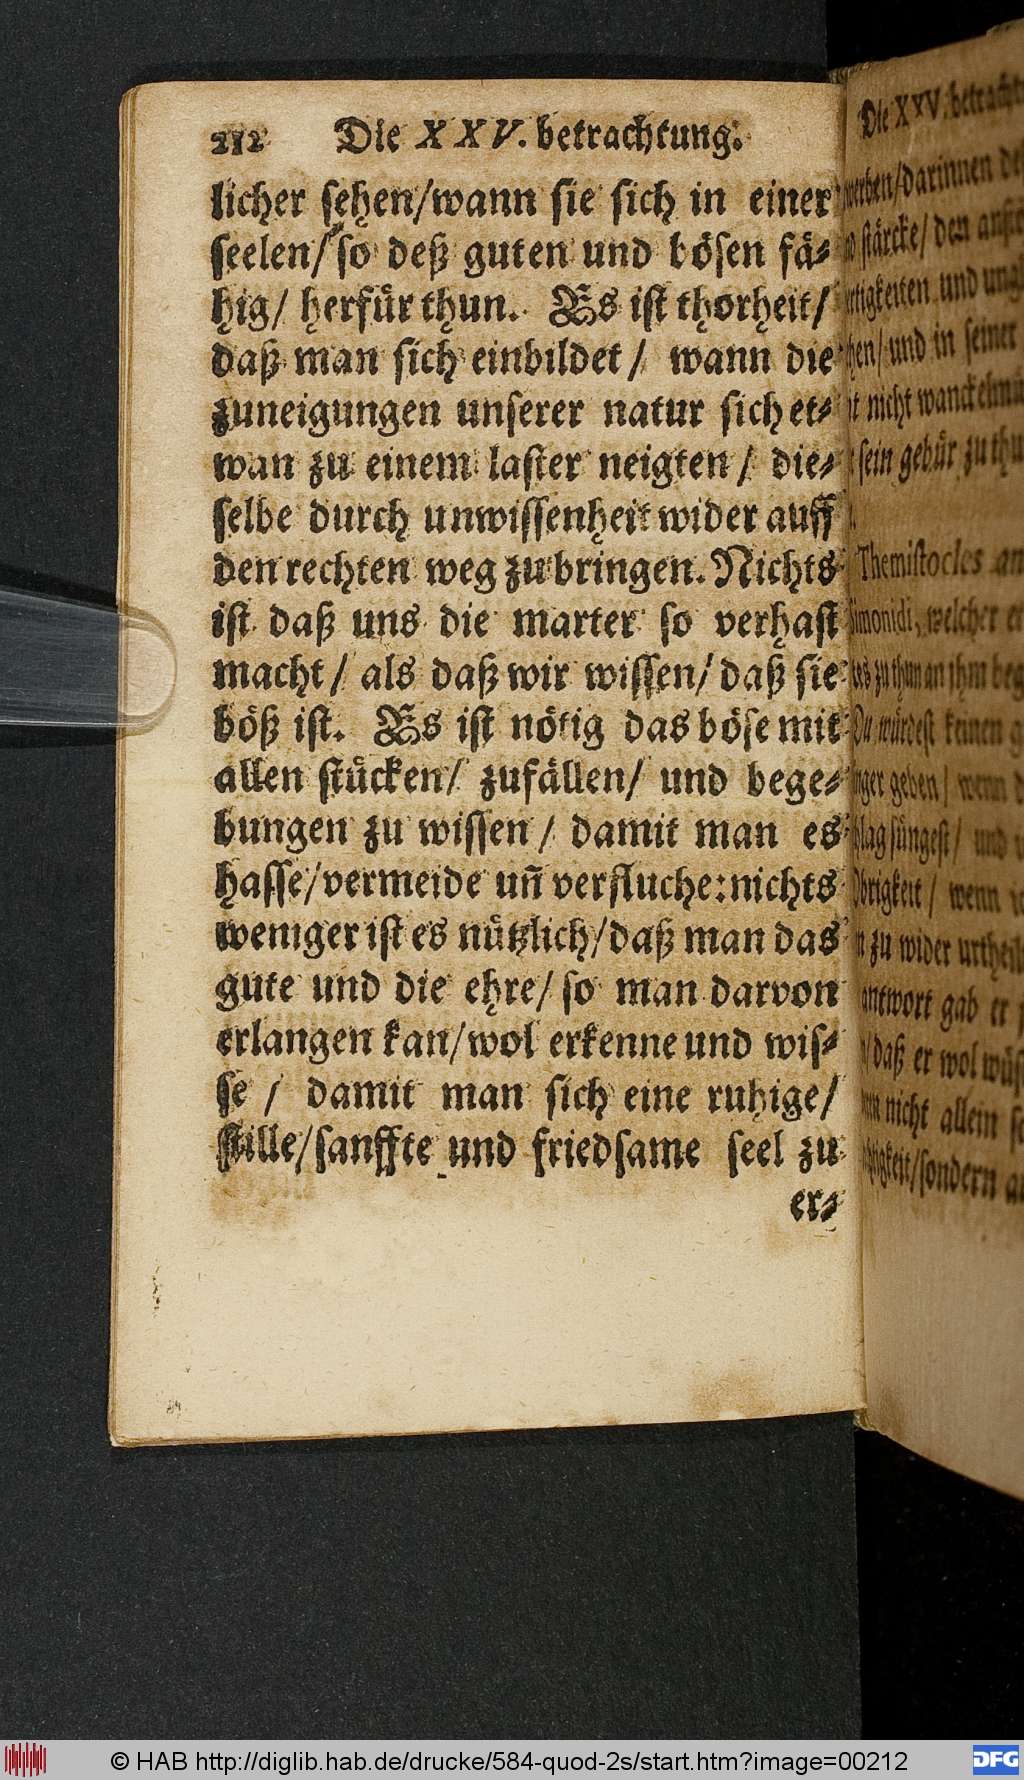 212 Die XXV. betrachtung.
licher sehen/wann sie sich in einer
seelen/so deß guten und bösen fä-
hig/ herfür thun. Es ist thorheit/
daß man sich einbildet/ wann die
zuneigungen unserer natur sich et-
wan zu einem laster neigten/ die-
selbe durch unwissenheit wider auff
den rechten weg zu bringen. Nichts
ist daß uns die marter so verhast
macht/ als daß wir wissen/daß sie
böß ist. Es ist nötig das böse mit
allen stücken/ zufällen/ und bege-
bungen zu wissen/ damit man es
hasse/vermeide uñ verfluche:nichts
weniger ist es nützlich/daß man das
gute und die ehre/ so man darvon
erlangen kan/wol erkenne und wis-
se/ damit man sich eine ruhige/
stille/sanffte und friedsame seel zu
er-
Die XXV. betracht
werben/darinnen
stärcke/ den
und
hen/ und in seiner
nicht
sein gebür zu
Themistocles
Simonidi, welcher
zu thun an ihm
Du würdest keinen
geben/ wenn
süngest/ und
Obrigkeit/ wenn
zu wider
antwort gab er
daß er wol
nicht allein
sondern
© HAB http://diglib.hab.de/drucke/584-quod-2s/start.htm?image=00212
DFG